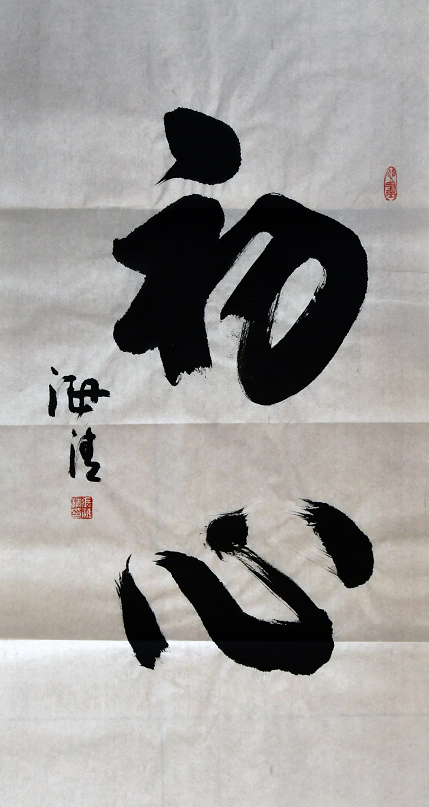 初心
海清